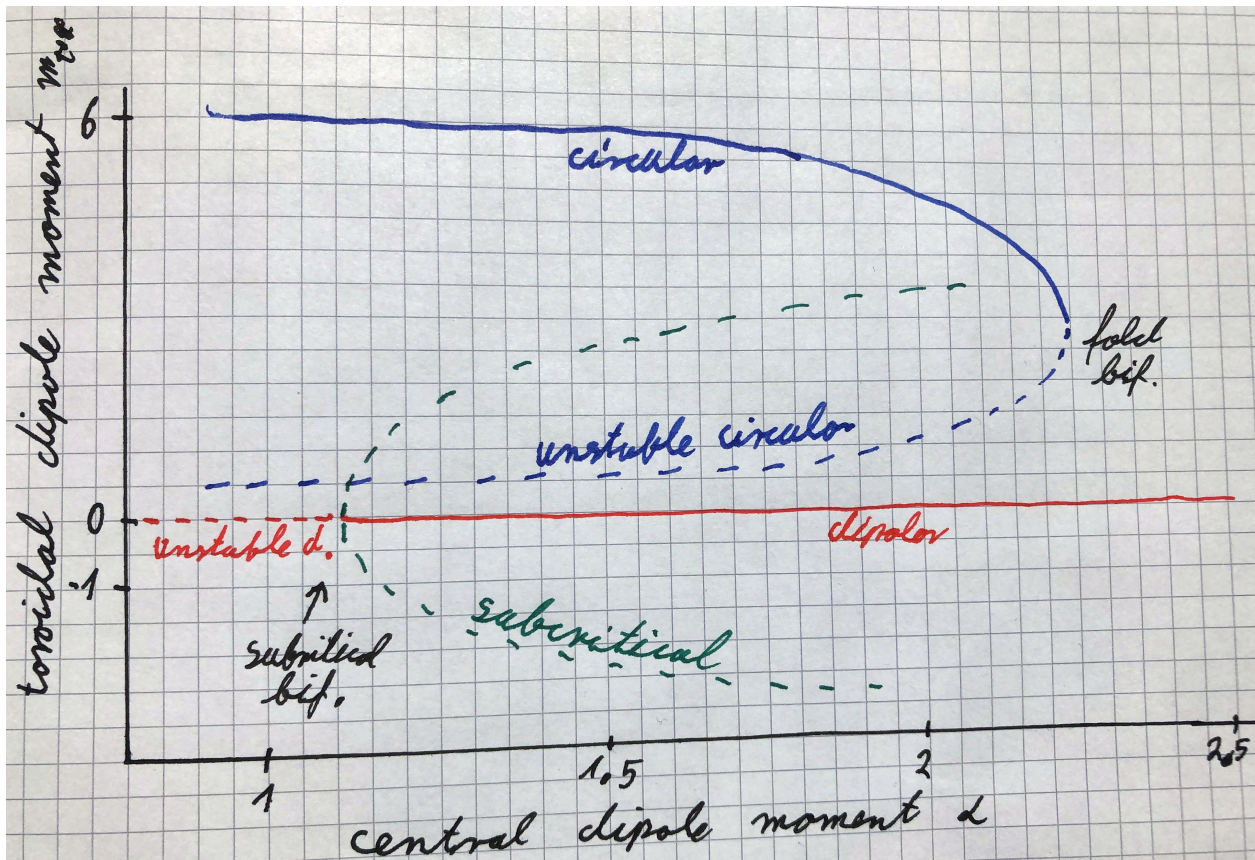 toroidal dipole moment
6
circular
fold
bif.
unstable circular
0
dipolar
unstable d.
-1
subcritical
bif.
1
1.5
2
2.5
central dipole moment d